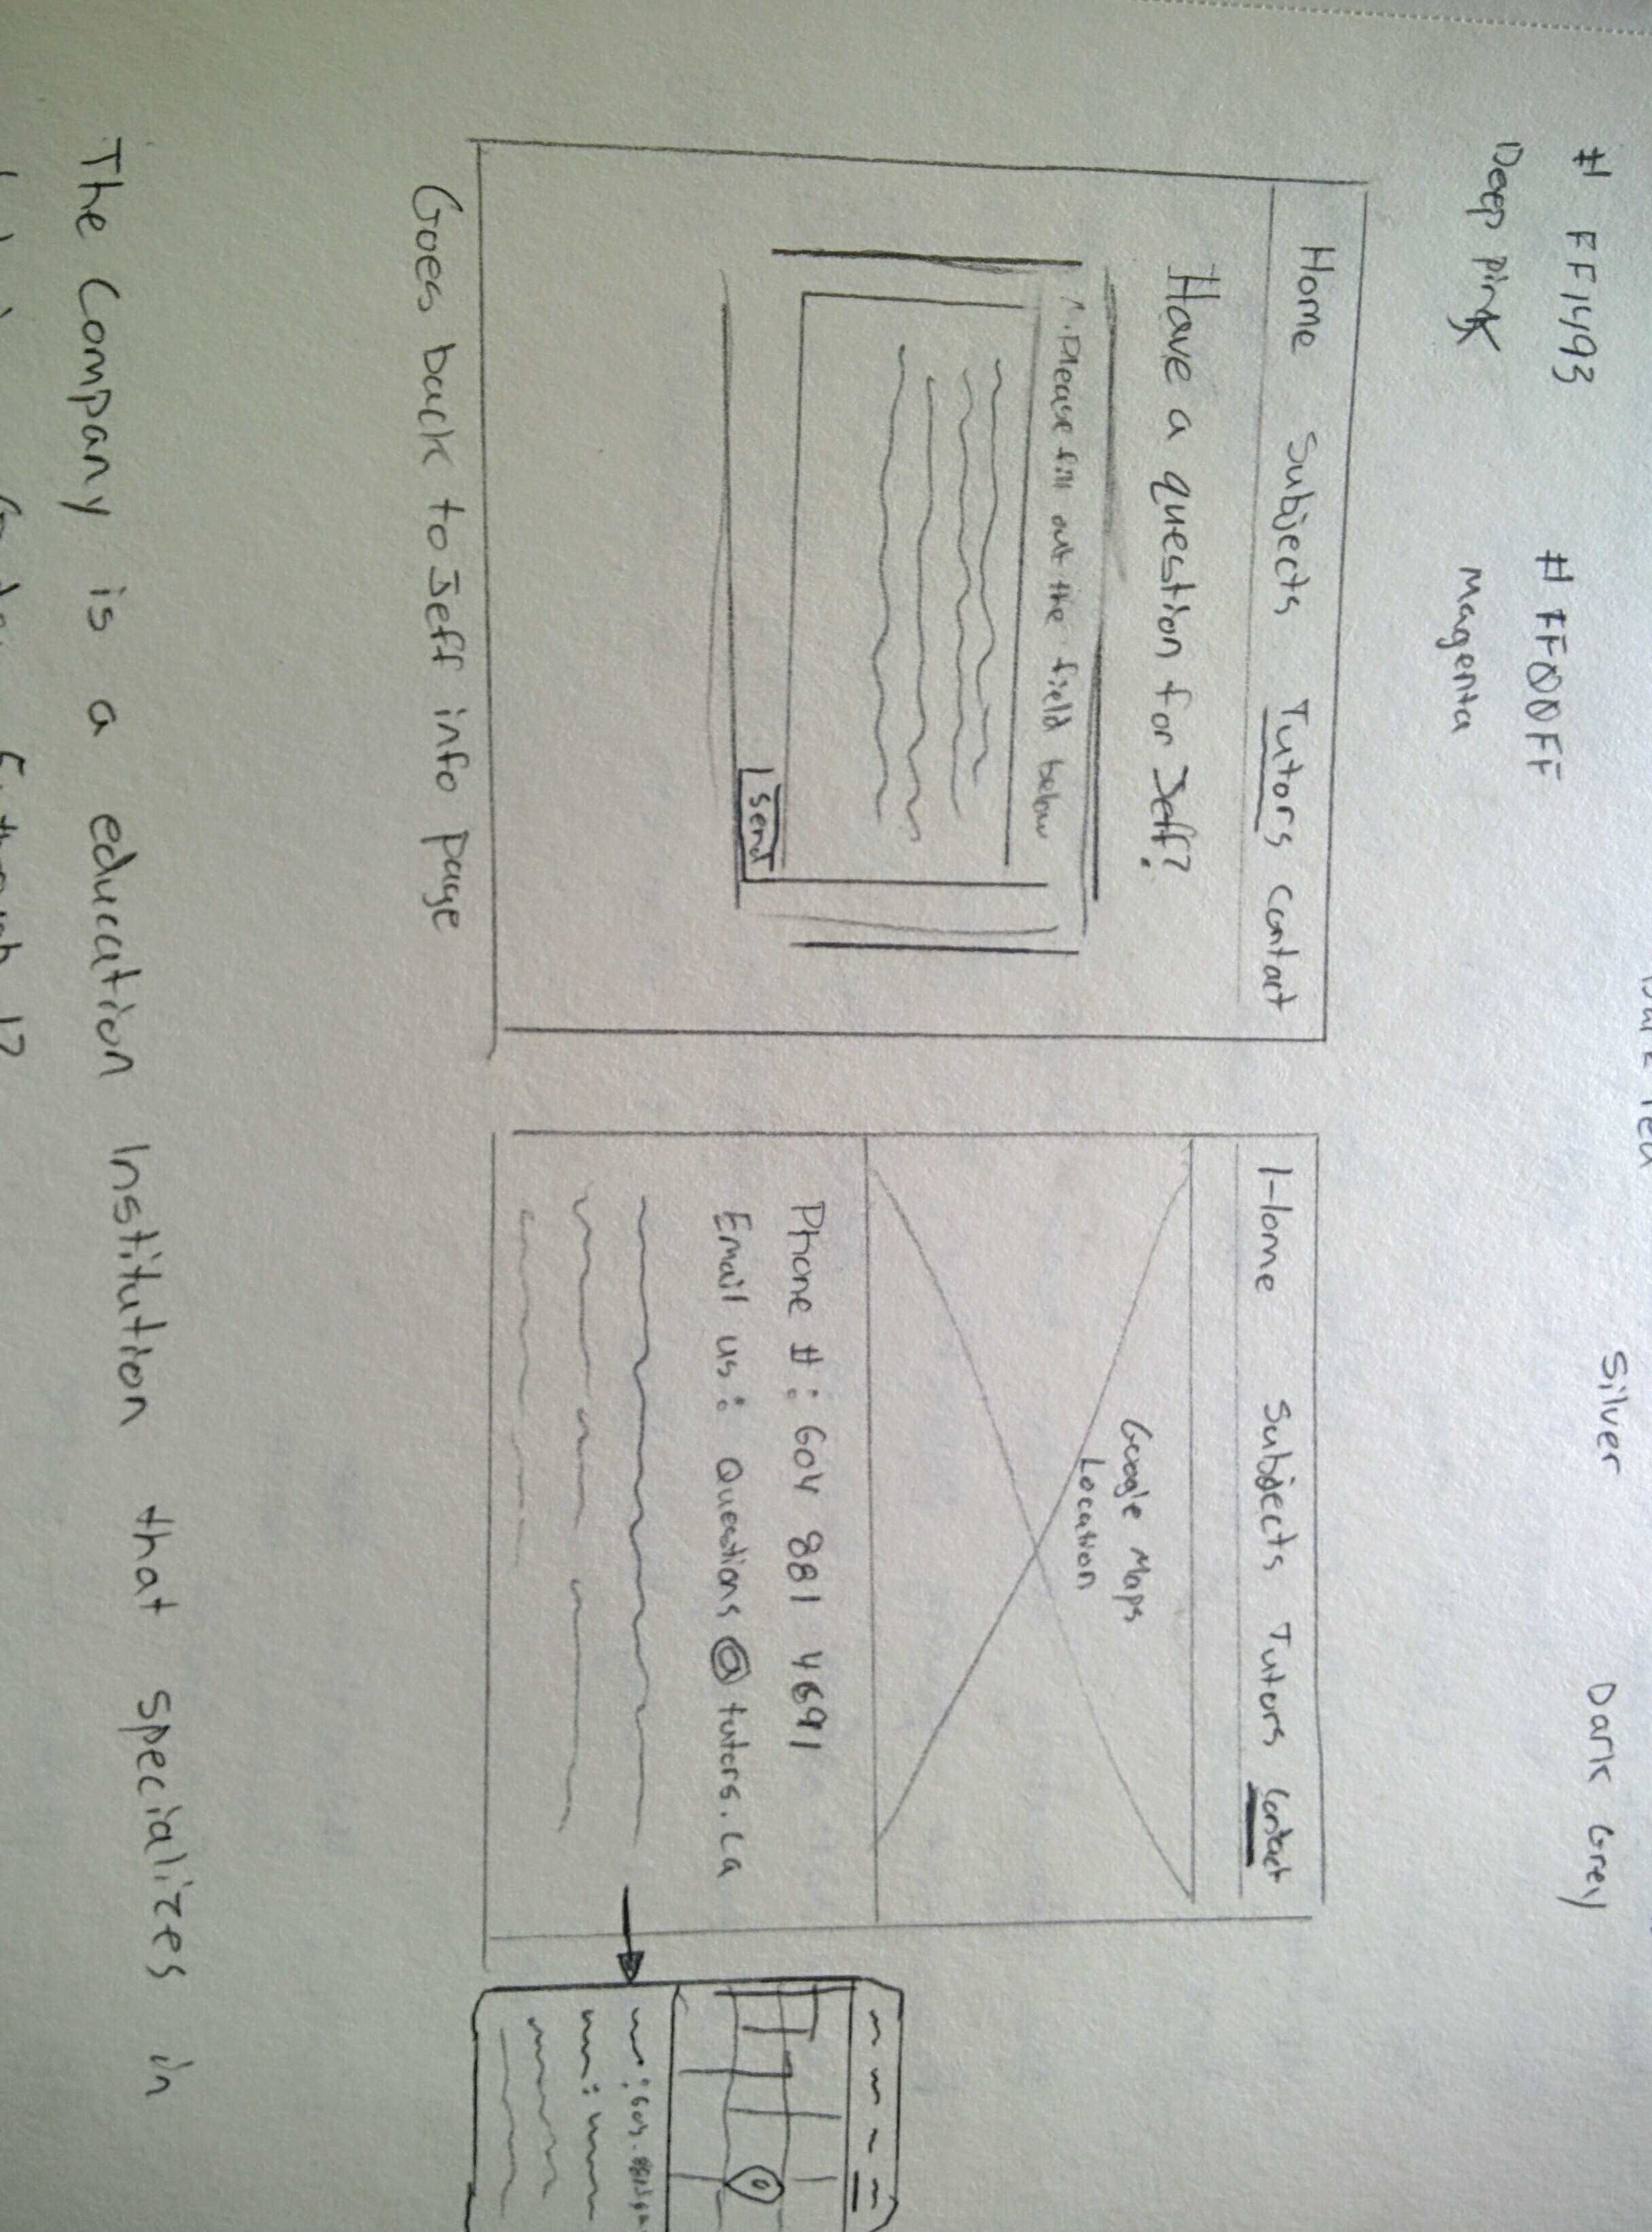 Silver
Dark Grey
# FF1493
# FF00FF
Deep pink
Magenta
Home Subjects Tutors Contact
Have a question for Jeff?
Please fill out the field below
Send
Goes back to Jeff info page
Home Subjects Tutors Contact
Google Maps
Location
Phone #: 604 881 4691
Email us: Questions @ tutors.ca
The Company is a education Institution that specializes in